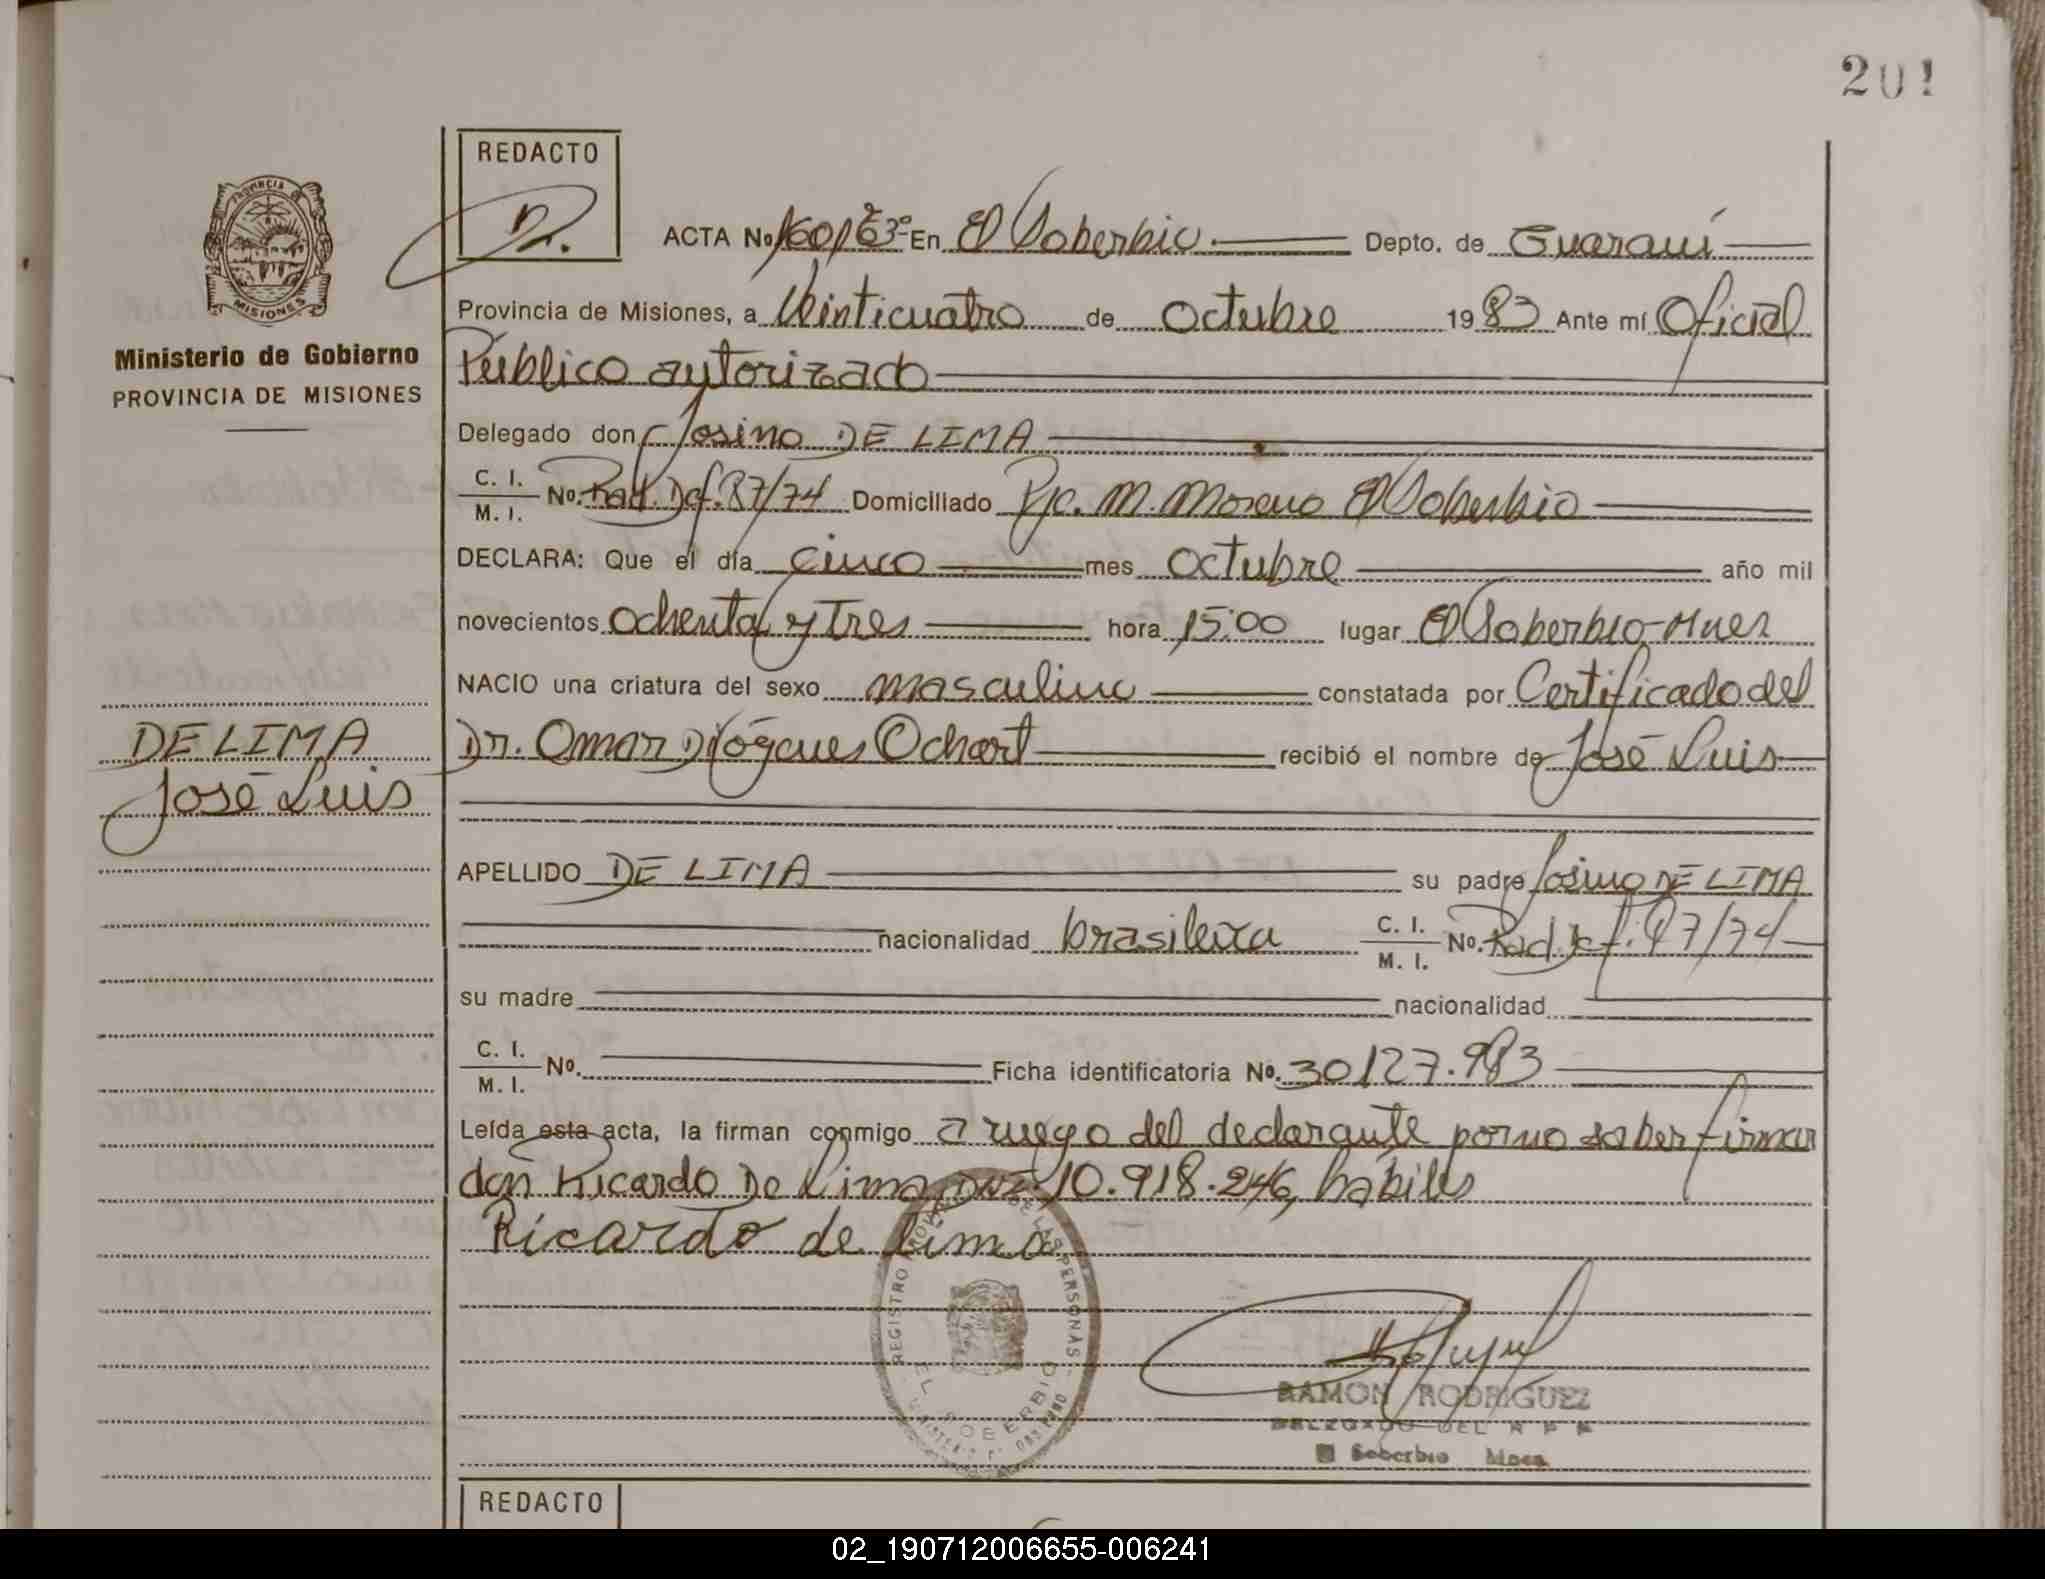 201
REDACTO
PROVINCIA DE
MISIONES
Ministerio de Gobierno
PROVINCIA DE MISIONES
ACTA No En El Soberbio. Depto. de Guaraní
Provincia de Misiones, a Veinticuatro de Octubre 1983 Ante mí Oficial
Público autorizado
Delegado don Josino DE LIMA
C. I.
M. I.
No. Rad. Def. 87/74 Domiciliado Pje. M. Moreno El Soberbio
DECLARA: Que el día cinco mes Octubre año mil
novecientos ochenta y Tres hora 15:00 lugar El Soberbio-Mnes
NACIO una criatura del sexo masculino constatada por Certificado del
Dr. Omar Diógenes Ochart recibió el nombre de José Luis
DE LIMA
José Luis
APELLIDO DE LIMA su padre Josino DE LIMA
nacionalidad brasilera C. I.
M. I. No. Rad. Def. 87/74
su madre nacionalidad
C. I.
M. I.
No. Ficha identificatoria No. 30127.983
Leída esta acta, la firman conmigo a ruego del declarante por no saber firmar
don Ricardo De Lima, DNI. 10.918.246, hábiles
Ricardo de Lima
REGISTRO PROV. DE LAS PERSONAS
EL SOBERBIO
RAMON RODRIGUEZ
DELEGADO DEL R P P
El Soberbio Mnes.
REDACTO
02_190712006655-006241